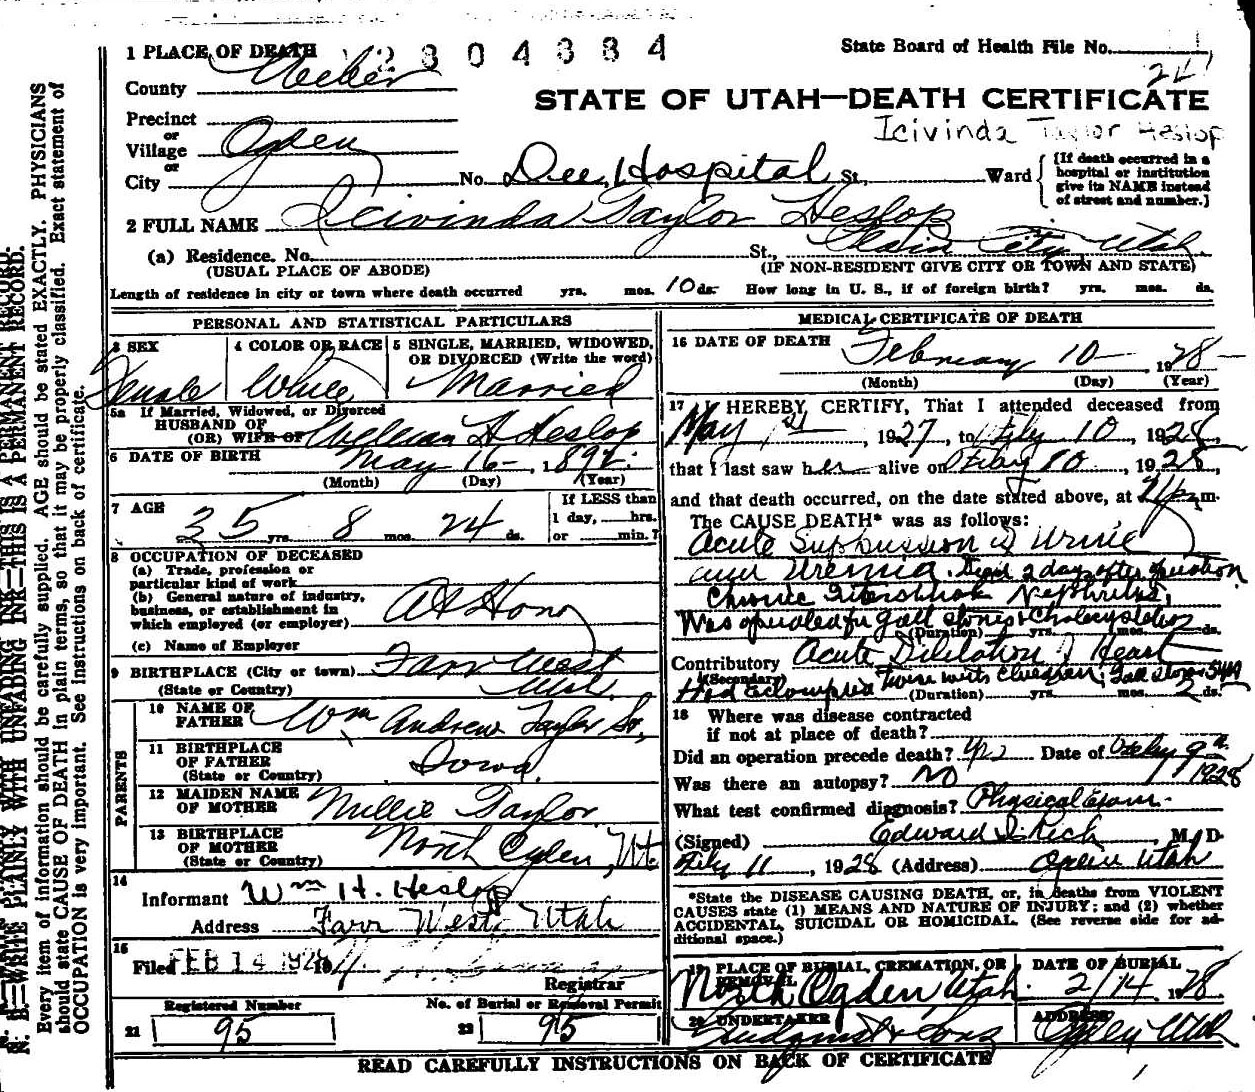 1 PLACE OF DEATH
2304884
State Board of Health File No.
County Weber
24
STATE OF UTAH—DEATH CERTIFICATE
Precinct
or
Village
or
City
Ogden
Icivinda Taylor Heslop
No. Dee Hospital St., Ward
{If death occurred in a
hospital or institution
give its NAME instead
of street and number.}
2 FULL NAME Icivinda Taylor Heslop
(a) Residence. No. St., Plain City Utah
(USUAL PLACE OF ABODE) (IF NON-RESIDENT GIVE CITY OR TOWN AND STATE)
Length of residence in city or town where death occurred yrs. mos. 10 ds. How long in U. S., if of foreign birth? yrs. mos. ds.
PERSONAL AND STATISTICAL PARTICULARS
3 SEX 4 COLOR OR RACE 5 SINGLE, MARRIED, WIDOWED,
OR DIVORCED (Write the word)
Female White Married
5a If Married, Widowed, or Divorced
HUSBAND OF
(OR) WIFE OF William H Heslop
6 DATE OF BIRTH May 16 - 1892
(Month) (Day) (Year)
7 AGE 35 yrs. 8 mos. 24 ds.
If LESS than
1 day, hrs.
or min.?
8 OCCUPATION OF DECEASED
(a) Trade, profession or
particular kind of work
(b) General nature of industry,
business, or establishment in
which employed (or employer)
At Home
(c) Name of Employer
9 BIRTHPLACE (City or town) Farr West
(State or Country) Utah
PARENTS
10 NAME OF
FATHER Wm Andrew Taylor Sr.
11 BIRTHPLACE
OF FATHER
(State or Country) Iowa
12 MAIDEN NAME
OF MOTHER Millie Taylor
13 BIRTHPLACE
OF MOTHER
(State or Country) North Ogden, Ut.
14
Informant Wm H. Heslop
Address Farr West, Utah
15
Filed FEB 14 1928
Registrar
Registered Number No. of Burial or Removal Permit
21 95 22 95
MEDICAL CERTIFICATE OF DEATH
16 DATE OF DEATH February 10 - 1928
(Month) (Day) (Year)
17 I HEREBY CERTIFY, That I attended deceased from
May 1st, 1927, to Feby 10, 1928,
that I last saw her alive on Feby 10, 1928,
and that death occurred, on the date stated above, at m.
The CAUSE DEATH* was as follows:
Acute Suppression of Urine
Uremia. Died 2 day after operation
Chronic Interstitial Nephritis,
Was operated for gall stones & Cholecystitis
(Duration) yrs. mos. ds.
Contributory Acute Dilation of Heart
(Secondary)
Had Eclampsia Twice with Children; Gall stones
(Duration) yrs. mos. 2 ds.
18 Where was disease contracted
if not at place of death?
Did an operation precede death? Yes Date of Feby 9th 1928
Was there an autopsy? No
What test confirmed diagnosis? Physical Exam.
(Signed) Edward I. Rich M D
Feby 11, 1928 (Address) Ogden Utah
*State the DISEASE CAUSING DEATH, or, in deaths from VIOLENT
CAUSES state (1) MEANS AND NATURE OF INJURY; and (2) whether
ACCIDENTAL, SUICIDAL OR HOMICIDAL. (See reverse side for ad-
ditional space.)
19 PLACE OF BURIAL, CREMATION, OR
REMOVAL
North Ogden Utah
DATE OF BURIAL
2/14 1928
20 UNDERTAKER
& Sons
ADDRESS
Ogden Utah
READ CAREFULLY INSTRUCTIONS ON BACK OF CERTIFICATE
N. B.—WRITE PLAINLY WITH UNFADING INK—THIS IS A PERMANENT RECORD.
Every item of information should be carefully supplied. AGE should be stated EXACTLY. PHYSICIANS
should state CAUSE OF DEATH in plain terms, so that it may be properly classified. Exact statement of
OCCUPATION is very important. See instructions on back of certificate.